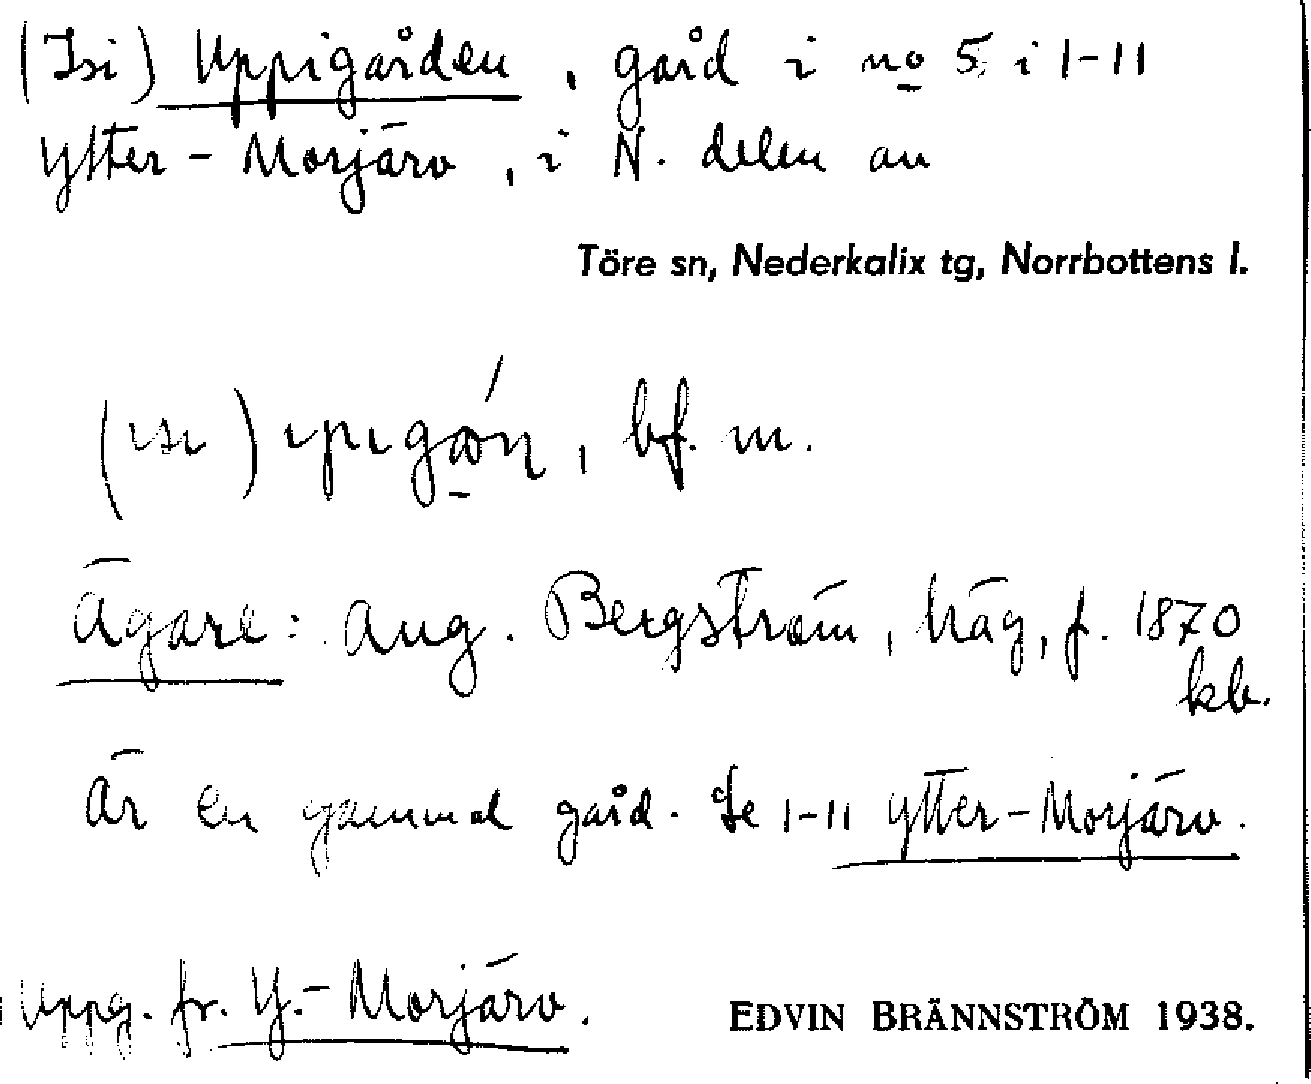 (Isi) Uppigården, gård i no 5 i 1-11
Ytter-Morjärv, i N. delen av
Töre sn, Nederkalix tg, Norrbottens l.
(ɪsɪ) ɪpɪgɷ́n, bf. m.
Ägare: Aug. Bergström, häg, f. 1870
kb.
Är en gammal gård. Se 1-11 Ytter-Morjärv.
Uppg. fr. Y.-Morjärv.
EDVIN BRÄNNSTRÖM 1938.